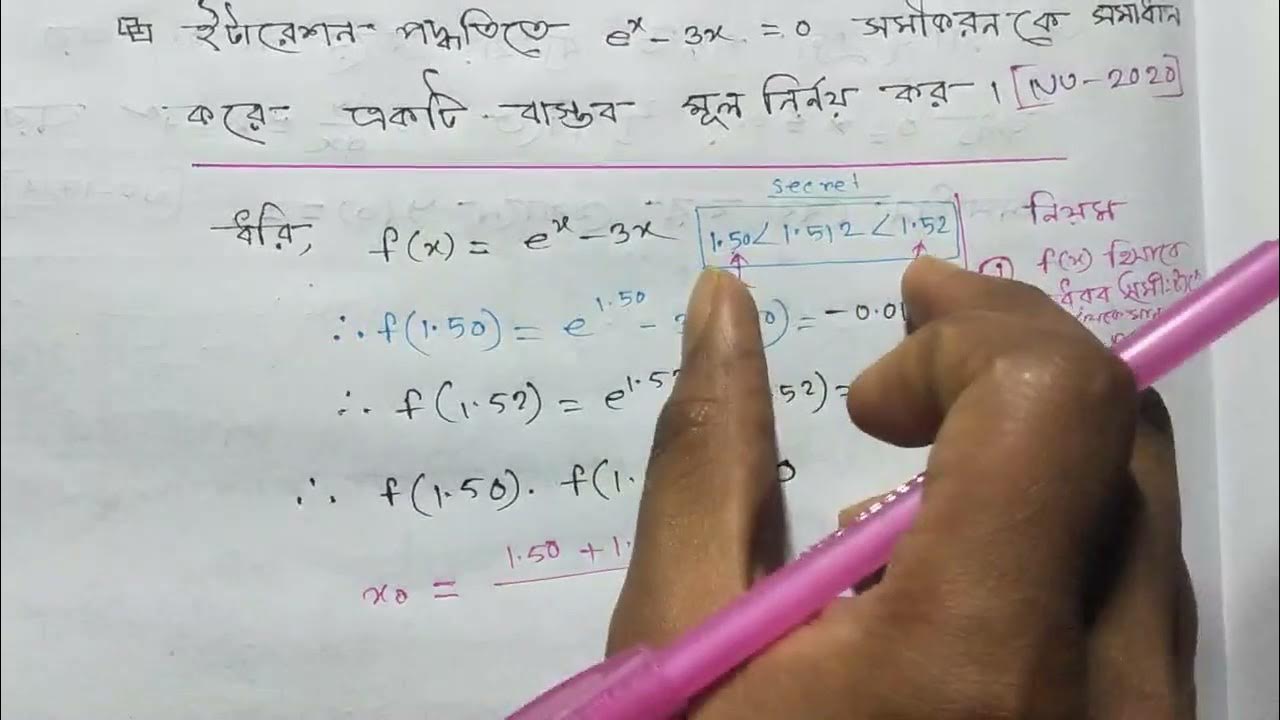 ইটারেশন পদ্ধতিতে e^x - 3x = 0 সমীকরনকে সমাধান
করে একটি বাস্তব মূল নির্নয় কর। [NU-2020]
secret
ধরি, f(x) = e^x - 3x 1.50 < 1.512 < 1.52
নিয়ম
① f(x) হিসাবে
∴ f(1.50) = e^1.50 - = -0.01
∴ f(1.52) = e^1.52 .52) =
∴ f(1.50). f(1. 0
x0 = 1.50 + 1.